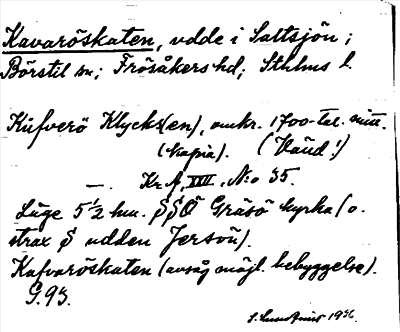 Kavaröskaten, udde i Saltsjön;
Börstil sn; Frösåkers hd; Sthlms l.
Kufverö Klycks(en), omkr. 1700-tal. mitt.
(kopia). (Vänd!)
—. Kr. A, XXII, N:o 35.
Läge 5½ hm. SSÖ Gräsö kyrka (o.
strax S udden Jersön).
Kafvaröskaten (avsåg möjl. bebyggelse).
G. 93.
1936